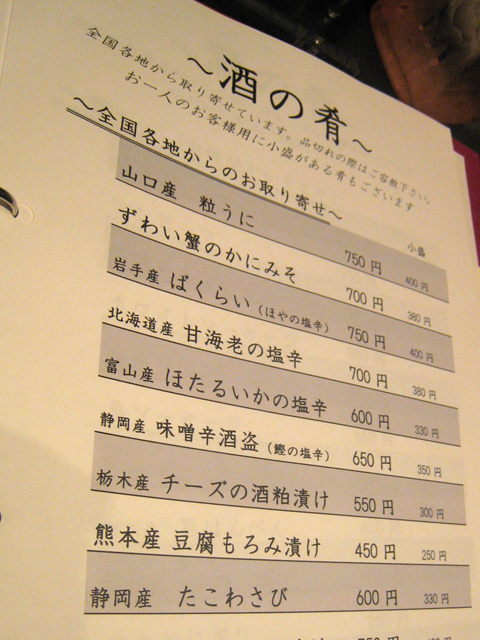 ～酒の肴～
全国各地から取り寄せています。品切れの際はご容赦下さい。
お一人のお客様用に小盛がある肴もございます
～全国各地からのお取り寄せ～
小盛
山口産 粒うに 750円 400円
ずわい蟹のかにみそ 700円 380円
岩手産 ばくらい(ほやの塩辛) 750円 400円
北海道産 甘海老の塩辛 700円 380円
富山産 ほたるいかの塩辛 600円 330円
静岡産 味噌辛酒盗(鰹の塩辛) 650円 350円
栃木産 チーズの酒粕漬け 550円 300円
熊本産 豆腐もろみ漬け 450円 250円
静岡産 たこわさび 600円 330円